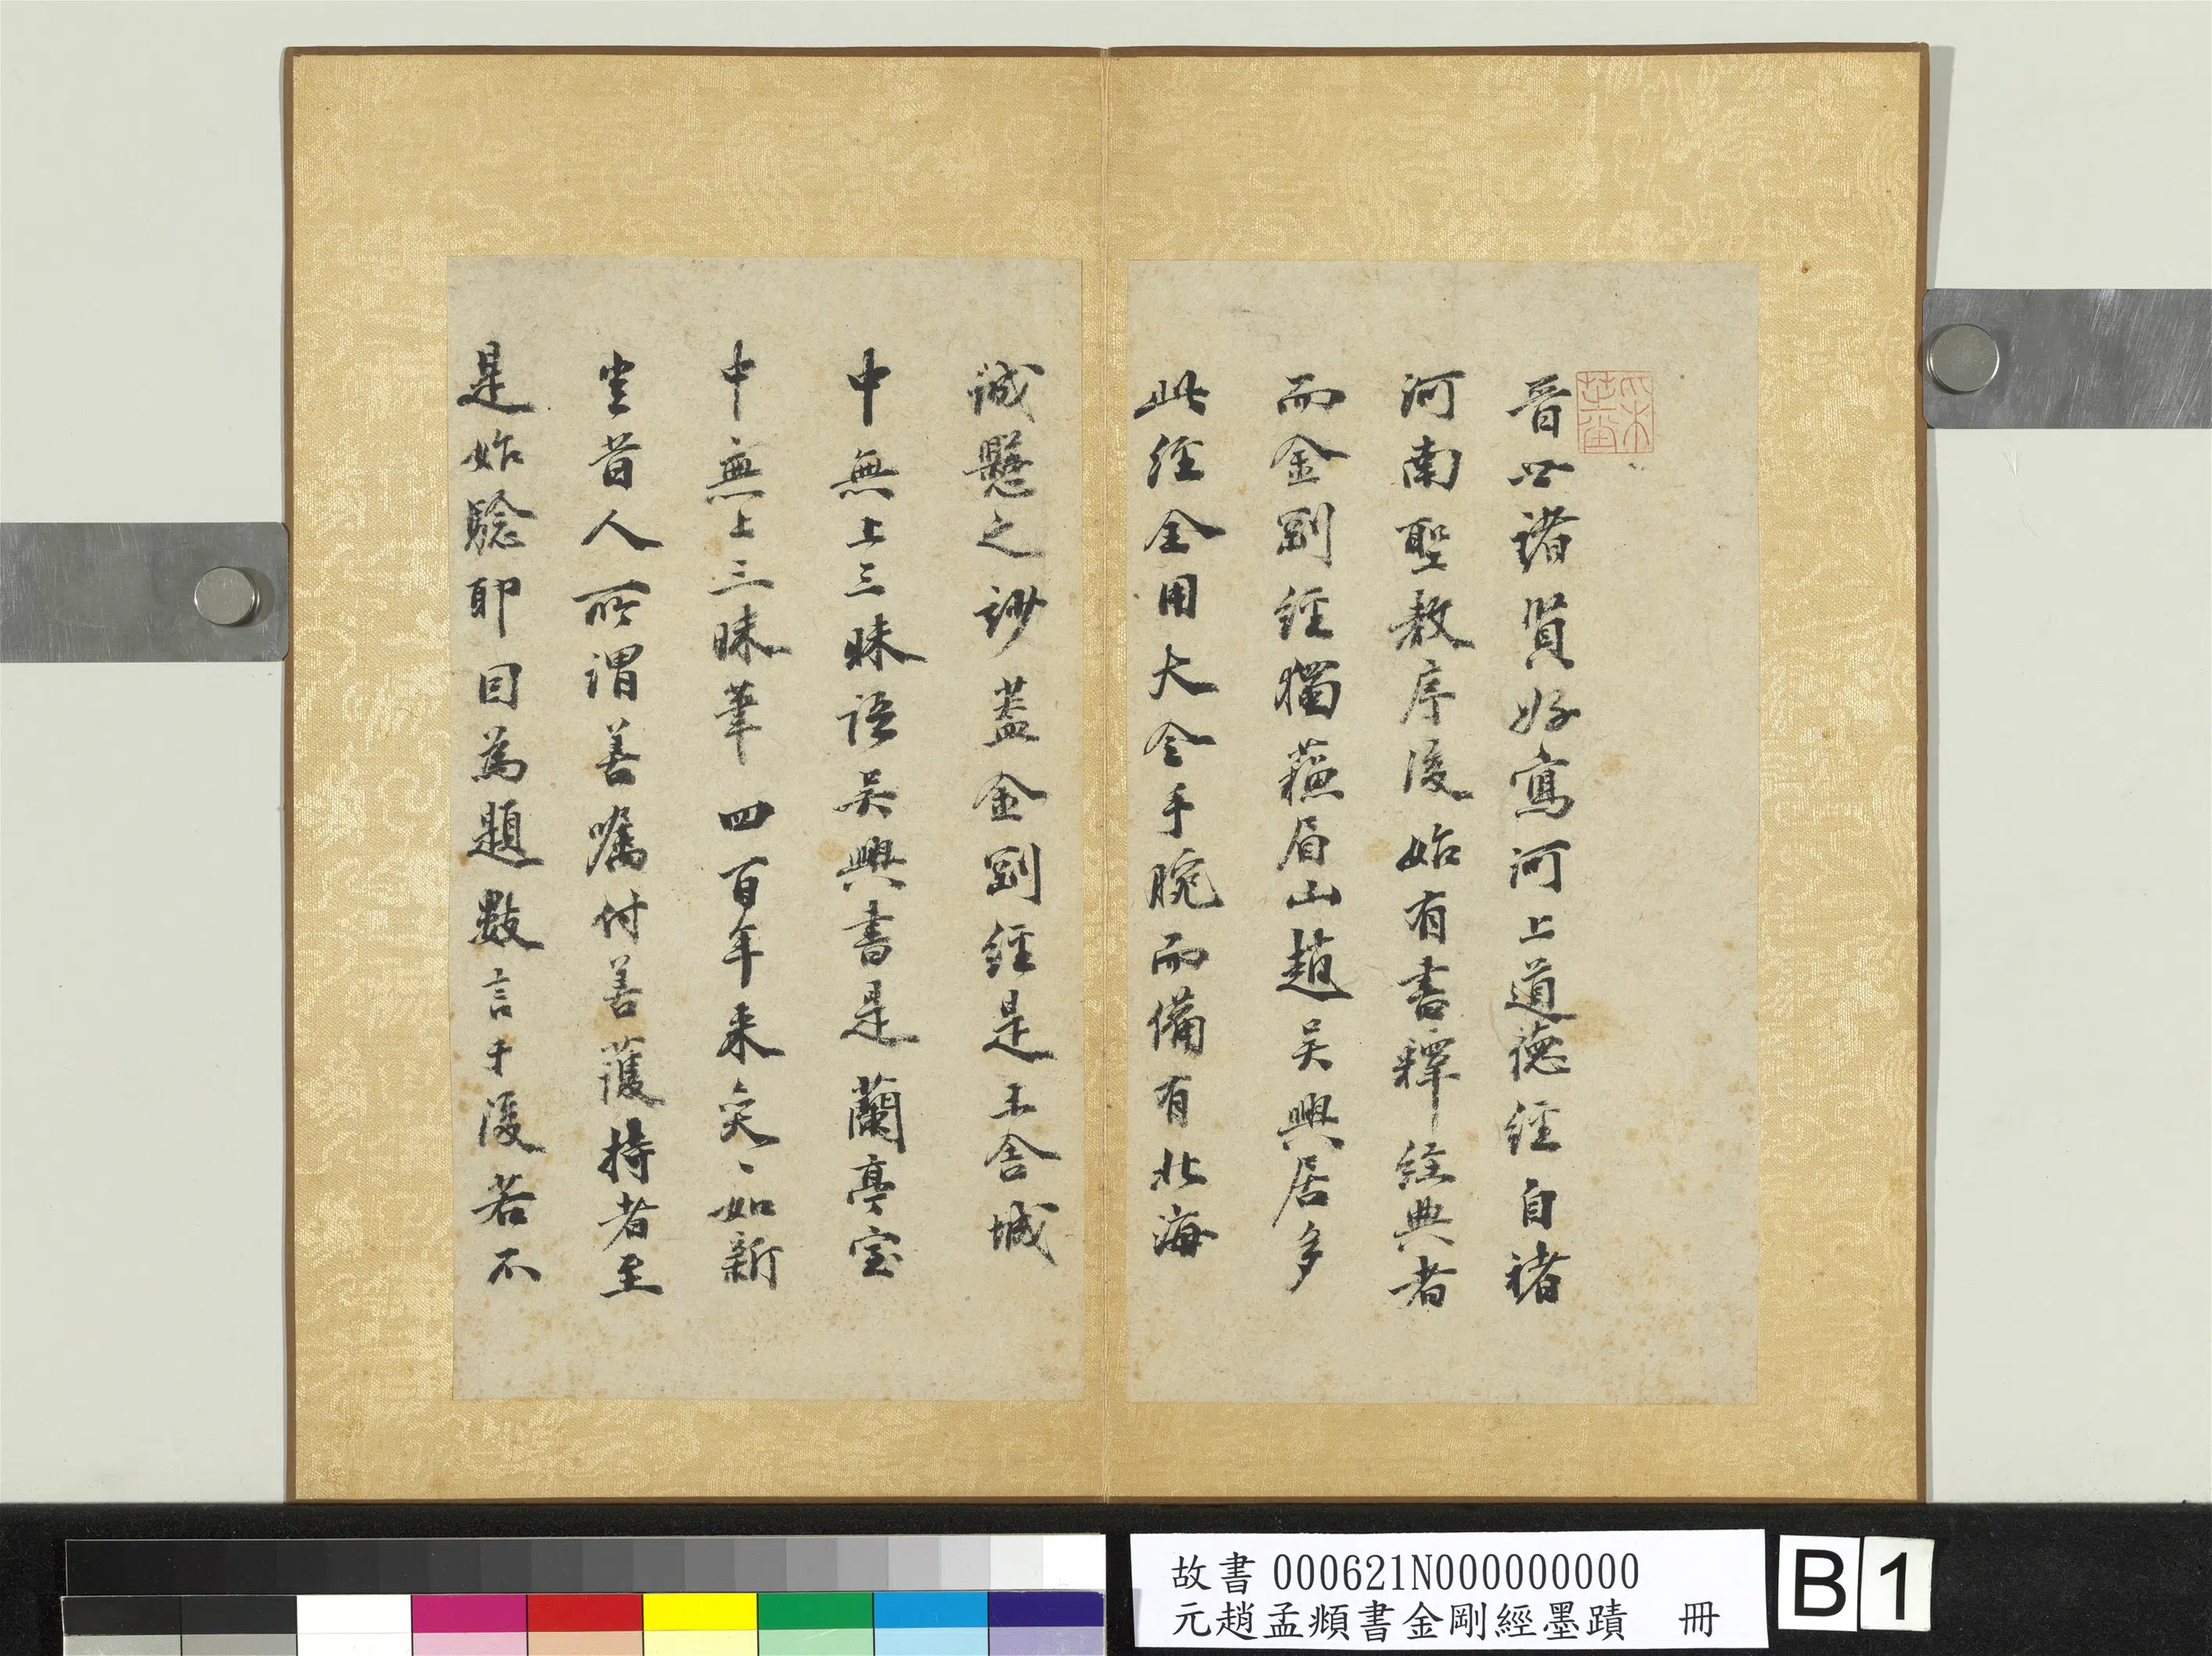 晉世諸賢好寫河上道德經自褚
河南聖教序後始有書釋經典者
而金剛經獨蘇眉山趙吳興居多
此經全用大令手腕而備有北海
誠懸之妙蓋金剛經是王舍城
中無上三昧語吳興書是蘭亭室
中無上三昧筆四百年來奕〻如新
豈昔人所謂善囑付善護持者至
是始驗耶因為題數言于後若不
故書 000621N000000000
元趙孟頫書金剛經墨蹟 冊
B 1